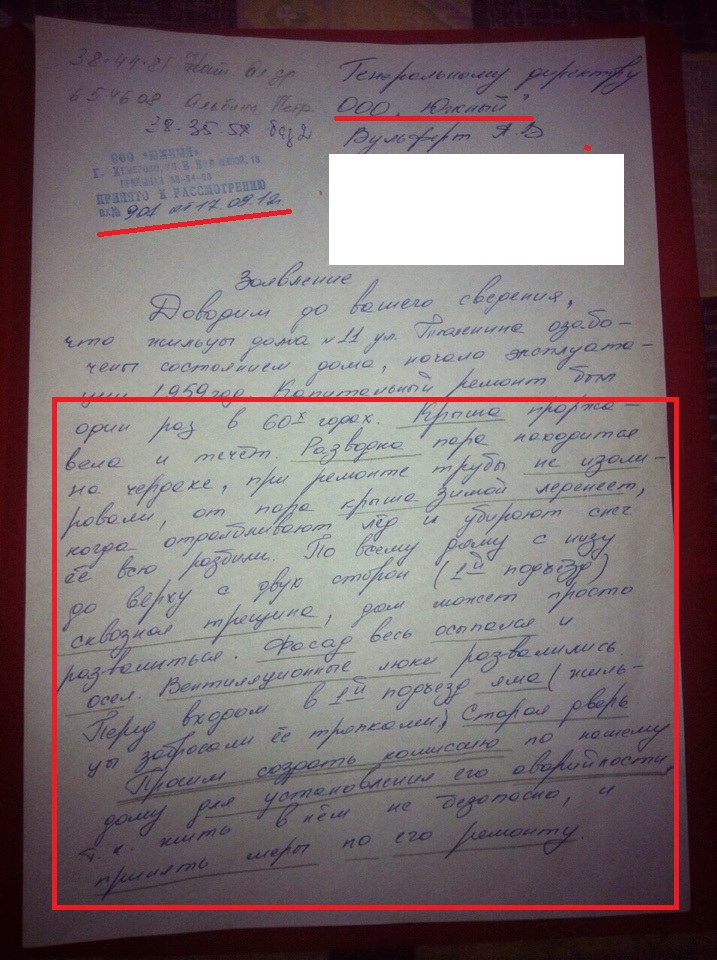 38-44-81
Генеральному директору
654608 Альбина Петр.
ООО "Южный"
38-35-58
Вульферт А В
ООО "ЮЖНЫЙ"
ПРИНЯТО К РАССМОТРЕНИЮ
вх№ 901 от 17.09.12г.
Заявление
Доводим до вашего сведения,
что жильцы дома №11 ул. озабо-
чены состоянием дома, начало эксплуата-
ции 1959 год. Капитальный ремонт был
один раз в 60х годах. Крыша проржа-
вела и течёт. Разводка пара находится
на чердаке, при ремонте трубы не изоли-
ровали, от пара крыша зимой леденеет,
когда отдалбливают лёд и убирают снег
её всю разбили. По всему дому с низу
до верху с двух сторон (1ый подъезд)
сквозная трещина, дом может просто
развалиться. Фасад весь осыпался и
осел. Вентиляционные люки развалились.
Перед входом в 1ый подъезд яма (жиль-
цы забросали её тряпками). Старая дверь
Просим создать комиссию по нашему
дому для установления его аварийности,
т.к. жить в нём не безопасно, и
принять меры по его ремонту.